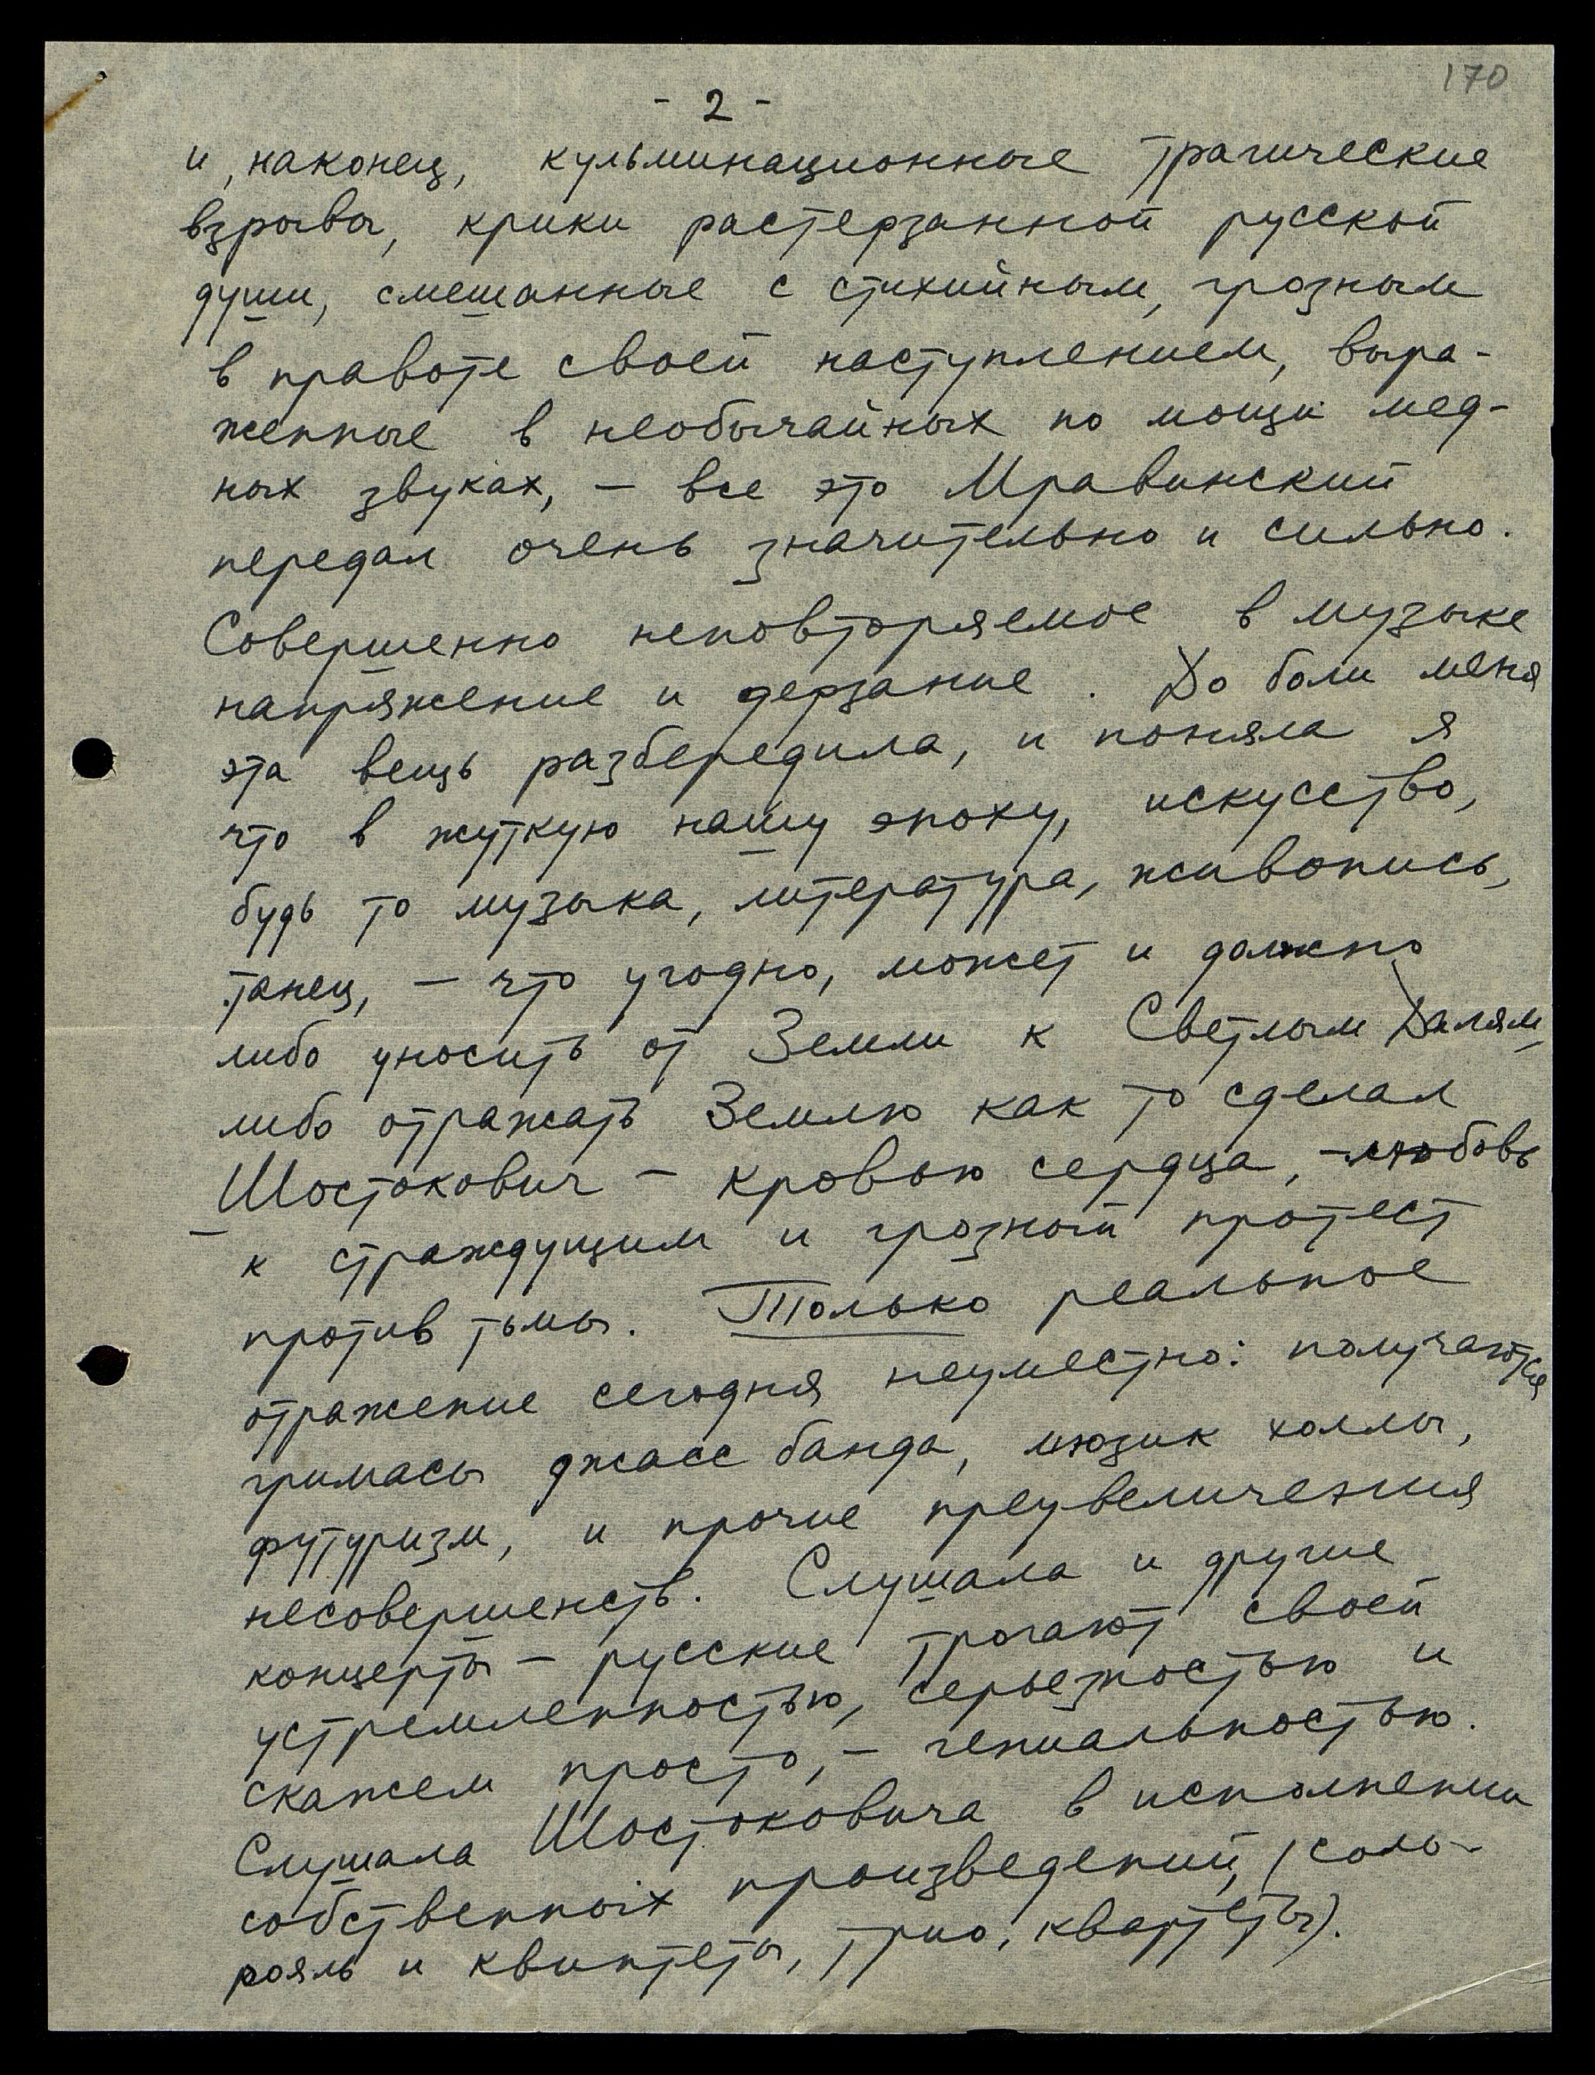 170
- 2 -
и, наконец, кульминационные трагические
взрывы, крики растерзанной русской
души, смешанные с стихийным, грозным
в правоте своей наступлением, выра-
женные в необычайных по мощи мед-
ных звуках, – все это Мравинский
передал очень значительно и сильно.
Совершенно неповторяемое в музыке
напряжение и дерзание. До боли меня
эта вещь разбередила, и поняла я
что в жуткую нашу эпоху, искусство,
будь то музыка, литература, живопись,
танец, – что угодно, может и должно
либо уносить от Земли к Светлым Далям,
либо отражать Землю как то сделал
Шостакович – кровью сердца, – любовь
к страждущим и грозный протест
против тьмы. Только реальное
отражение сегодня неуместно: получаются
гримасы джасс банда, мюзик холлы,
футуризм, и прочие преувеличения
несовершенств. Слушала и другие
концерты – русские трогают своей
устремленностью, серьезностью и
скажем просто, – гениальностью.
Слушала Шостаковича в исполнении
собственных произведений, (соло-
рояль и квинтеты, трио, квартеты).